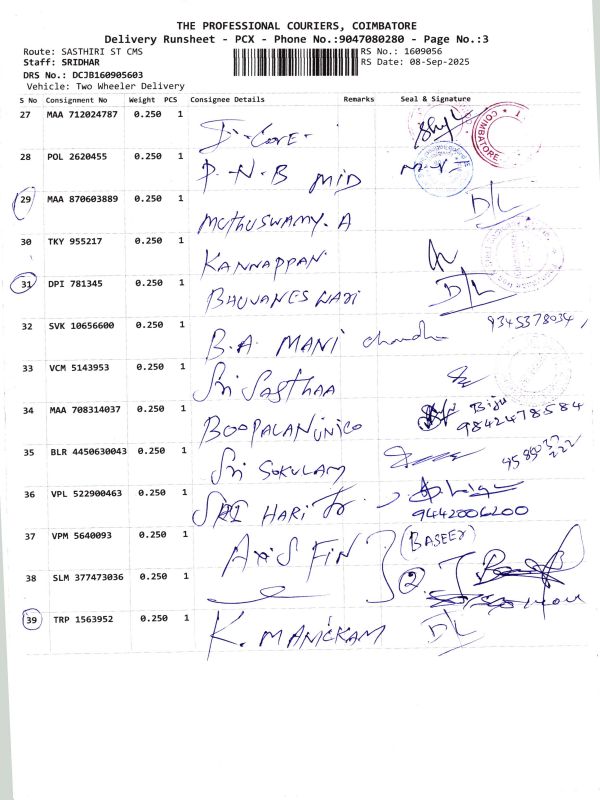 THE PROFESSIONAL COURIERS, COIMBATORE
Delivery Runsheet - PCX - Phone No.:9047080280 - Page No.:3
Route: SASTHIRI ST CMS RS No.: 1609056
Staff: SRIDHAR RS Date: 08-Sep-2025
DRS No.: DCJB160905603
Vehicle: Two Wheeler Delivery
S No Consignment No Weight PCS Consignee Details Remarks Seal & Signature
27 MAA 712024787 0.250 1
COIMBATORE
28 POL 2620455 0.250 1 P-N-B MID
29 MAA 870603889 0.250 1 D/L
MUTHUSWAMY. A
30 TKY 955217 0.250 1
KANNAPPAN
31 DPI 781345 0.250 1 D/L
BHUVANESWARI
32 SVK 10656600 0.250 1 9345378034,
B.A. MANI
33 VCM 5143953 0.250 1
Sri Sasthaa
34 MAA 708314037 0.250 1 Biju
BOOPALAN 9842478584
35 BLR 4450630043 0.250 1
Sri GOKULAM
36 VPL 522900463 0.250 1
SRI HARI 9442006200
37 VPM 5640093 0.250 1 (BASEER)
AXIS FIN
38 SLM 377473036 0.250 1 2
39 TRP 1563952 0.250 1 D/L
K. MANICKAM